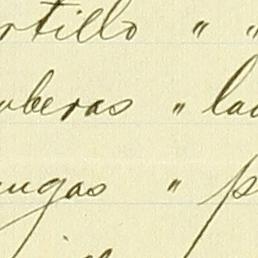 rtillo " "
oberas " la
ugas " p